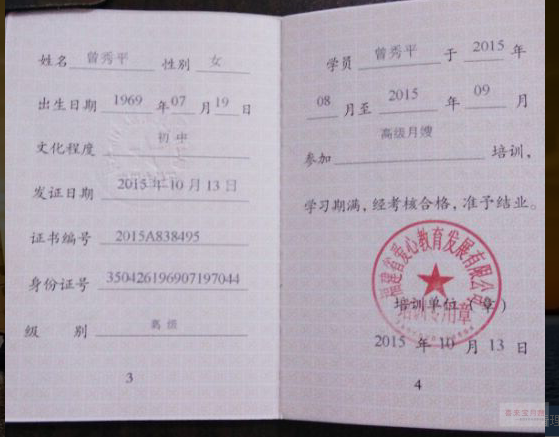 姓名 曾秀平 性别 女
出生日期 1969 年 07 月 19 日
文化程度 初中
发证日期 2015 年 10 月 13 日
证书编号 2015A838495
身份证号 350426196907197044
级 别 高级
3
学员 曾秀平 于 2015 年
08 月至 2015 年 09 月
参加 高级月嫂 培训,
学习期满,经考核合格,准予结业。
福建省爱心教育发展有限公司
培训专用章
培训单位(章)
2015 年 10 月 13 日
4